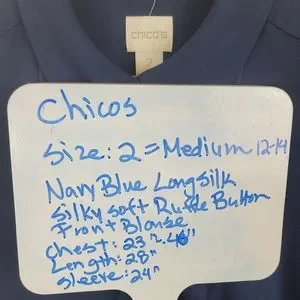 chico's
2
Chicos
Size: 2 = Medium 12-14
Navy Blue Long Silk
Silky soft Ruffle Button
Front Blouse
Chest: 23"-46"
Length: 28"
Sleeve: 24"